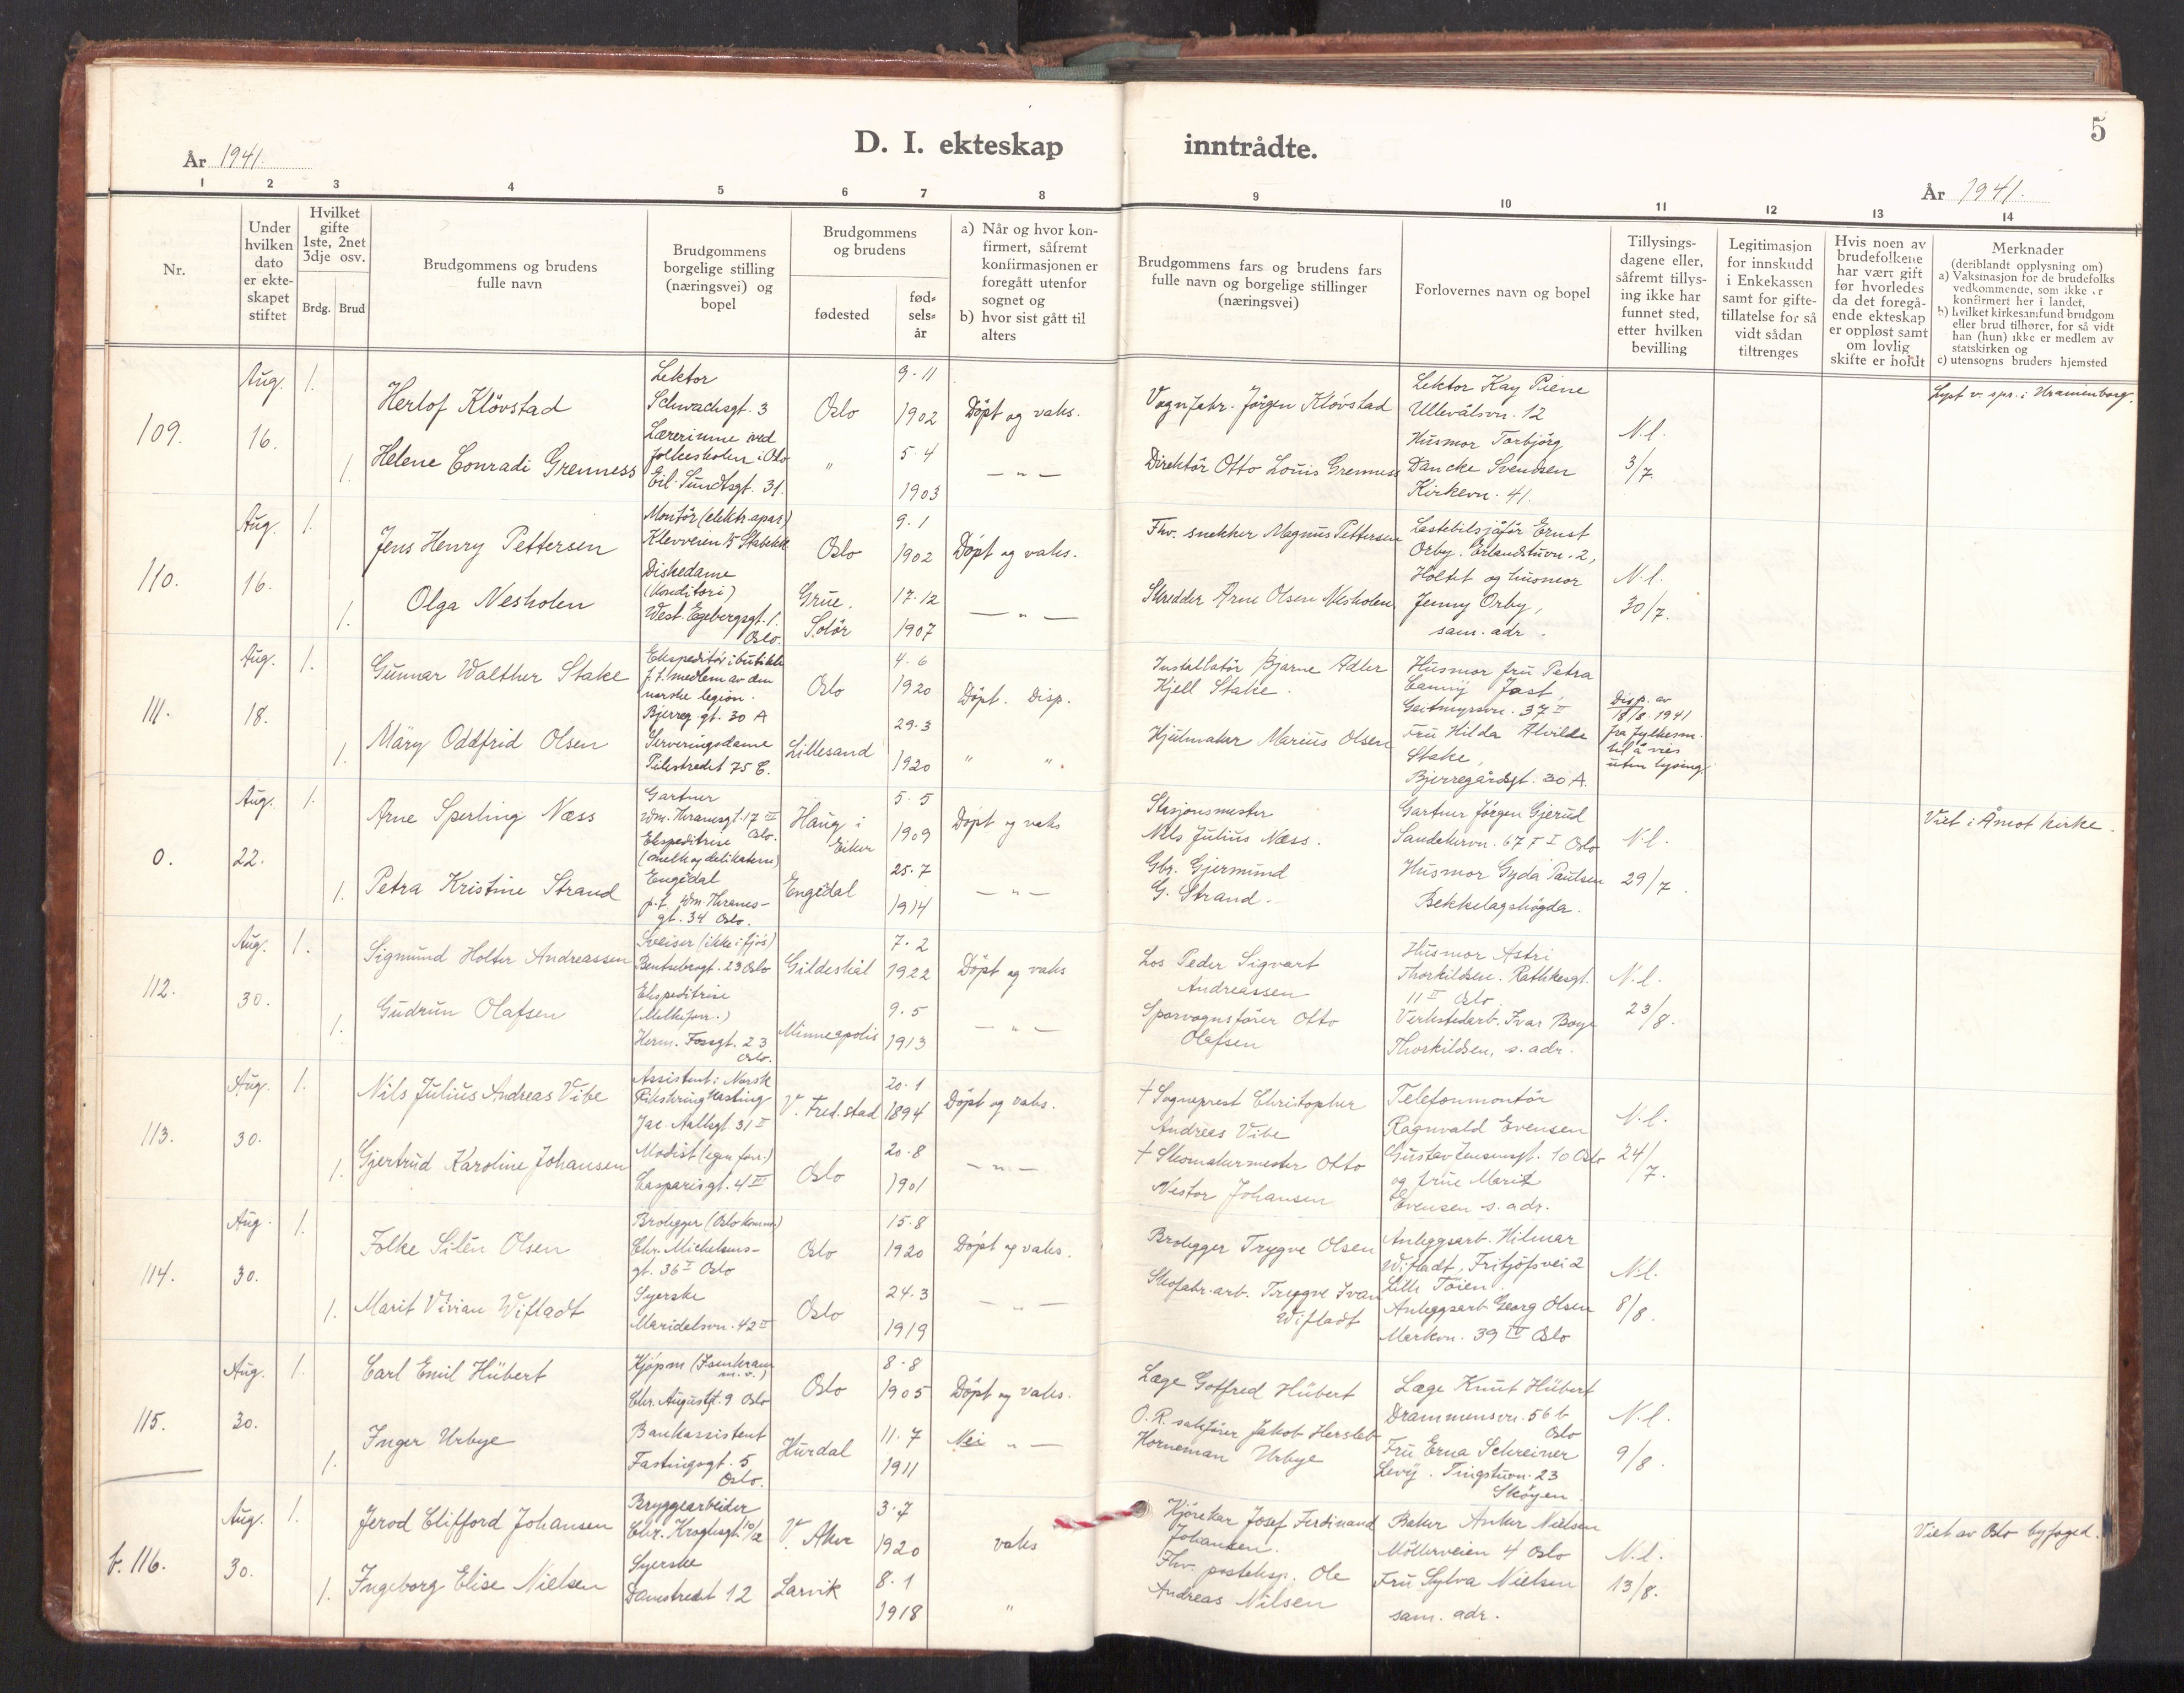 5
D. I. ekteskap inntrådte.
År 1941.
År 1941.
1 2 3 4 5 6 7 8 9 10 11 12 13 14
Nr.
Under
hvilken
dato
er ekte-
skapet
stiftet
Hvilket
gifte
1ste, 2net
3dje osv.
Brdg. Brud
Brudgommens og brudens
fulle navn
Brudgommens
borgelige stilling
(næringsvei) og
bopel
Brudgommens
og brudens
fødested
fød-
sels-
år
a) Når og hvor kon-
firmert, såfremt
konfirmasjonen er
foregått utenfor
sognet og
b) hvor sist gått til
alters
Brudgommens fars og brudens fars
fulle navn og borgelige stillinger
(næringsvei)
Forlovernes navn og bopel
Tillysings-
dagene eller,
såfremt tillys-
ing ikke har
funnet sted,
etter hvilken
bevilling
Legitimasjon
for innskudd
i Enkekassen
samt for gifte-
tillatelse for så
vidt sådan
tiltrenges
Hvis noen av
brudefolkene
har vært gift
før hvorledes
da det foregå-
ende ekteskap
er oppløst samt
om lovlig
skifte er holdt
Merknader
(deriblandt opplysning om)
a) Vaksinasjon for de brudefolks
vedkommende, som ikke er
konfirmert her i landet,
b) hvilket kirkesamfund brudgom
eller brud tilhører, for så vidt
han (hun) ikke er medlem av
statskirken og
c) utensogns bruders hjemsted
109.
Aug.
16.
1.
1.
Herlof Klövstad
Helene Conradi Grenness
Lektor
Schwachsgt. 3
Lærerinne ved
folkeskolen i Oslo
Eil. Sundtsgt. 31.
Oslo
"
9-11
1902
5-4
1903
Döpt og vaks.
— " —
Vognfabr. Jörgen Klövstad
Direktör Otto Louis Grenness
Lektor Kay Piene
Ullevålsvn. 12
Husmor Torbjörg
Dancke Svendsen
Kirkevn. 41.
N.l.
3/7.
Lyst v. spr. i Uranienborg.
110.
Aug.
16.
1.
1.
Jens Henry Pettersen
Olga Nesholen
Montör (elektr. apar.)
Klevveien 15 Stabekk
Diskedame
(Konditori)
West. Egebergsgt. 1.
Oslo.
Oslo
Grue.
Solör
9.1
1902
17.12
1907
Döpt og vaks.
— " —
Fhv. snekker Magnus Pettersen
Skredder Arne Olsen Nesholen
Lastebilsjåför Ernst
Orby. Erlandstuvn. 2,
Holtet og husmor
Jenny Orby,
sam. adr.
N.l.
30/7.
111.
Aug.
18.
1.
1.
Gunnar Walther Stake
Märy Oddfrid Olsen
Ekspeditör i butikk
f.t. medlem av den
norske legion.
Bjerreg.gt. 30 A
Serveringsdame
Pilestredet 75 C.
Oslo
Lillesand
4.6
1920
29.3
1920
Döpt. Disp.
" ".
Installatör Bjarne Adler
Kjell Stake.
Hjulmaker Marius Olsen
Husmor fru Petra
Fanny Jost,
Geitmyrsvn. 37 II
Fru Hilda Alvilde
Stake,
Bjerregårdsgt. 30 A.
Disp. av
18/8. 1941
fra fylkesm.
til å vies
uten lysing.
0.
Aug.
22.
1.
1.
Arne Sperling Næss
Petra Kristine Strand
Gartner
Wm. Thranesgt. 17 III
Oslo.
Ekspeditrise
(melk og delikatesse)
Engedal
p.t. Wm. Thranes-
gt. 34 Oslo.
Haug i
Eiker
Engedal
5.5
1909
25.7
1914
Döpt og vaks
— " —
Stasjonsmester
Nils Julius Næss.
Gbr. Gjermund
G. Strand.
Gartner Jörgen Gjerud
Sandakervn. 67 F I Oslo
Husmor Gyda Paulsen
Bekkelagshögda.
N.l.
29/7.
Viet i Åmot kirke.
112.
Aug.
30.
1.
1.
Sigmund Holter Andreassen
Gudrun Olafsen
Sveiser (ikke i fjös)
Bentsebrogt. 23 Oslo
Ekspeditrise
(Melkeforr.)
Herm. Fossgt. 23
Oslo.
Gildeskål
Minneapolis
7.2
1922
9.5
1913
Döpt og vaks
— " —
Los Peder Sigvart
Andreassen
Sporvognsförer Otto
Olafsen
Husmor Astri
Thorkildsen. Rathkesgt.
11 II Oslo.
Verkstedarb. Ivar Boye
Thorkildsen, s. adr.
N.l.
23/8.
113.
Aug.
30.
1.
1.
Nils Julius Andreas Vibe
Gjertrud Karoline Johansen
Assistent i Norsk
Rikskringkasting
Jac. Aallsgt. 31 I
Modist (egen forr.)
Casparisgt. 4 III
V. Fred.stad
Oslo
20.1
1894
20.8
1901
Döpt og vaks.
— " —
† Sogneprest Christopher
Andreas Vibe
† Skomakermester Otto
Nestor Johansen
Telefonmontör
Ragnvald Evensen
Gustav Jensensgt. 10 Oslo
og frue Marit
Evensen s. adr.
N.l.
24/7.
114.
Aug.
30.
1.
1.
Folke Silén Olsen
Marit Vivian Wifladt
Brolegger (Oslo komm.)
Chr. Michelsens-
gt. 36 I Oslo
Syerske
Maridalsvn. 42 II
Oslo
Oslo
15.8
1920
24.3
1919
Döpt og vaks.
— " —
Brolegger Trygve Olsen
Skofabr. arb. Tryggve Ivan
Wifladt
Anleggsarb. Hilmar
Wifladt, Fritjofsvei 2
Lille Töien.
Anleggsarb Georg Olsen
Markvn. 39 IV Oslo
N.l.
8/8.
115.
Aug.
30.
1.
1.
Carl Emil Hübert
Inger Urbye
Kjöpm (Jernkram
m.v.)
Chr. Augustsgt. 9 Oslo
Bankassistent
Fastingsgt. 5
Oslo.
Oslo
Hurdal
8.8
1905
11.7
1911
Döpt og vaks.
Nei " —
Læge Gotfred Hübert
O.R. sakförer Jakob Hersleb
Horneman Urbye
Læge Knut Hübert
Drammensvn. 56 b
Oslo
Fru Erna Schreiner
Levy. Tingstuvn. 23
Sköyen.
N.l.
9/8.
b. 116.
Aug.
30.
1.
1.
Jerod Clifford Johansen
Ingeborg Elise Nielsen
Bryggearbeider
Chr. Kroghsgt. 10/12
Syerske
Damstredet 12
V. Aker
Larvik
3.7
1920
8.1
1918
vaks
"
Kjörekar Josef Ferdinand
Johansen.
Fhv. posteksp. Ole
Andreas Nilsen
Baker Anker Nielsen
Möllerveien 4 Oslo
Fru Sylva Nielsen
sam. adr.
N.l.
13/8.
Viet av Oslo byfoged.